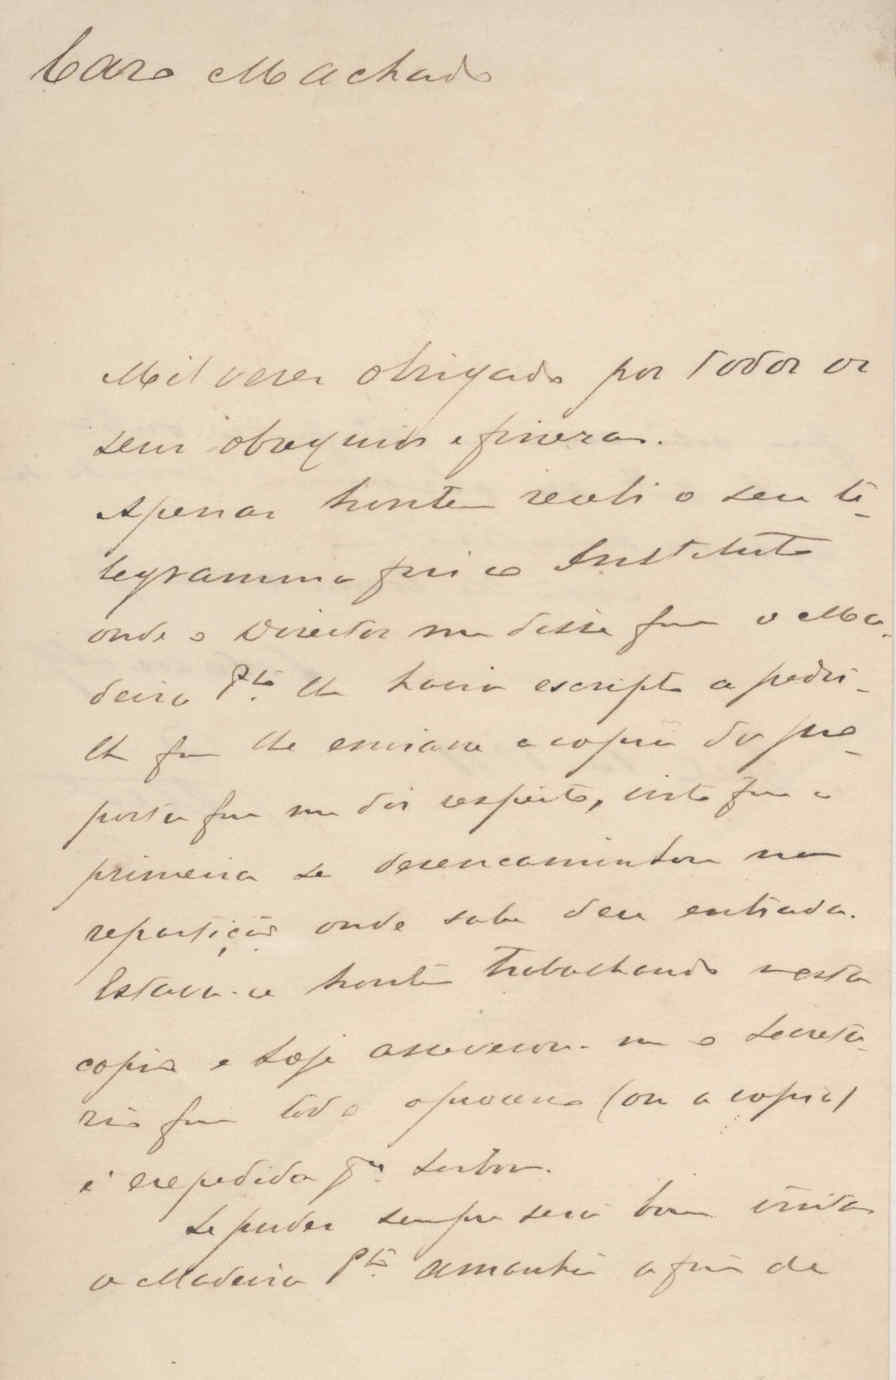 Caro Machado
Mil vezes obrigado por todos os
seus obsequios e finezas.
Apenas hontem recebi o seu te-
legramma fui ao Instituto
onde o Director me disse que o Ma-
deira Pto. lhe havia escripto a pedir-
lhe que lhe enviasse a copia da pro-
posta que me diz respeito, visto que a
primeira se desencaminhou na
repartição onde sabe deu entrada.
Estava-se hontem trabalhando nesta
copia e hoje asseverou-me o Secreta-
rio que todo o processo (ou a copia)
é expedida pa. Lisboa.
Se puder sempre será bom
o Madeira Pto. amanhã a fim de